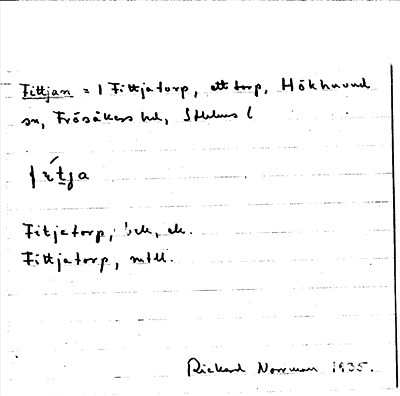 Fittjan = 1 Fittjatorp, ett torp, Hökhuvud
sn, Frösåkers hd, Sthlms l
Fitjatorp, bek, ek.
Fittjatorp, mtl.
Rickard Norrman 1935.